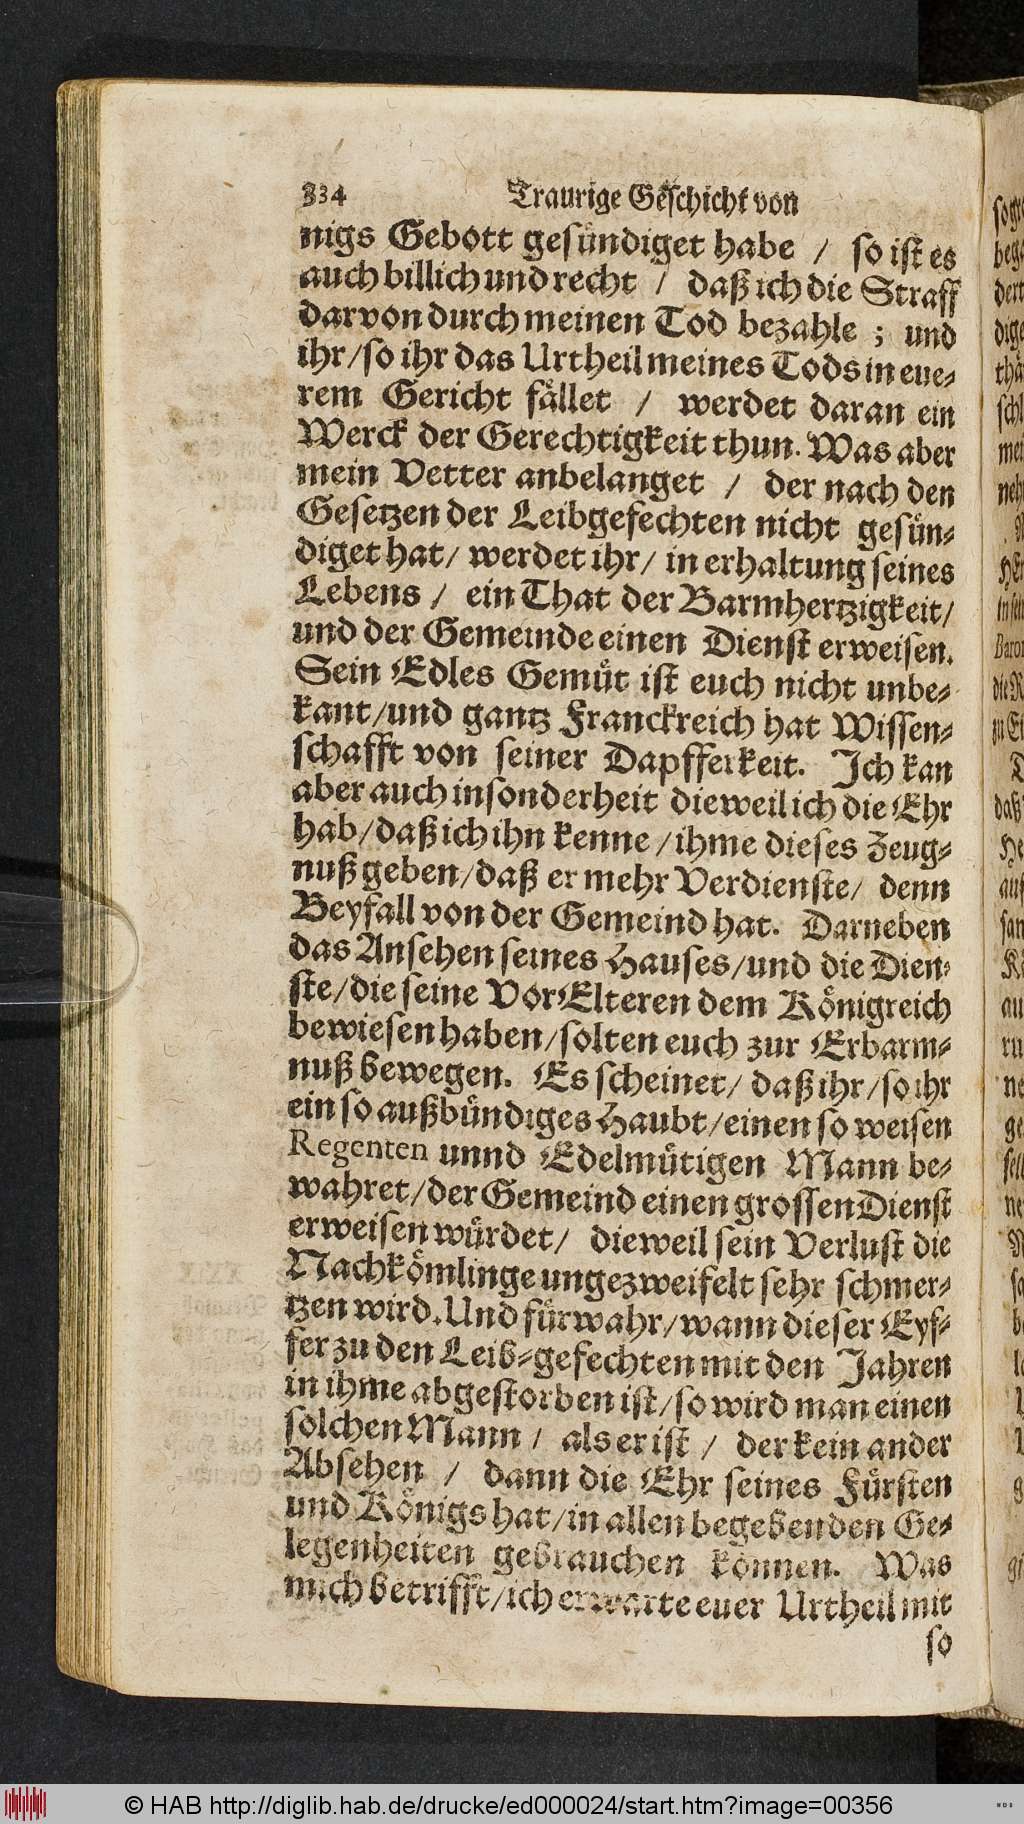 334 Traurige Geschicht von
nigs Gebott gesündiget habe / so ist es
auch billich und recht / daß ich die Straff
darvon durch meinen Tod bezahle ; und
ihr/so ihr das Urtheil meines Tods in eue-
rem Gericht fället / werdet daran ein
Werck der Gerechtigkeit thun. Was aber
mein Vetter anbelanget / der nach den
Gesetzen der Leibgefechten nicht gesün-
diget hat/ werdet ihr/ in erhaltung seines
Lebens / ein That der Barmhertzigkeit/
und der Gemeinde einen Dienst erweisen.
Sein Edles Gemüt ist euch nicht unbe-
kant/und gantz Franckreich hat Wissen-
schafft von seiner Dapfferkeit. Ich kan
aber auch insonderheit dieweil ich die Ehr
hab/daß ich ihn kenne/ihme dieses Zeug-
nuß geben/daß er mehr Verdienste/ denn
Beyfall von der Gemeind hat. Darneben
das Ansehen seines Hauses/und die Dien-
ste/die seine VorElteren dem Königreich
bewiesen haben/solten euch zur Erbarm-
nuß bewegen. Es scheinet/ daß ihr/so ihr
ein so außbündiges Haubt/einen so weisen
Regenten unnd Edelmütigen Mann be-
wahret/der Gemeind einen grossen Dienst
erweisen würdet/ dieweil sein Verlust die
Nachkömlinge ungezweifelt sehr schmer-
tzen wird. Und fürwahr/wann dieser Eyf-
fer zu den Leib-gefechten mit den Jahren
in ihme abgestorben ist/so wird man einen
solchen Mann / als er ist / der kein ander
Absehen / dann die Ehr seines Fürsten
und Königs hat/in allen begebenden Ge-
legenheiten gebrauchen können. Was
mich betrifft/ich erwarte euer Urtheil mit
so
© HAB http://diglib.hab.de/drucke/ed000024/start.htm?image=00356